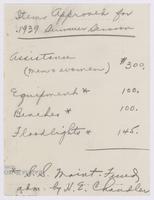 Items Approach for
1939 Summer Season
Assistance $300.
(men & women)
Equipment * 100.
Beaches * 100.
Floodlights * 145.
* S.S. Maint. Fund
adm. by H.E. Chandler